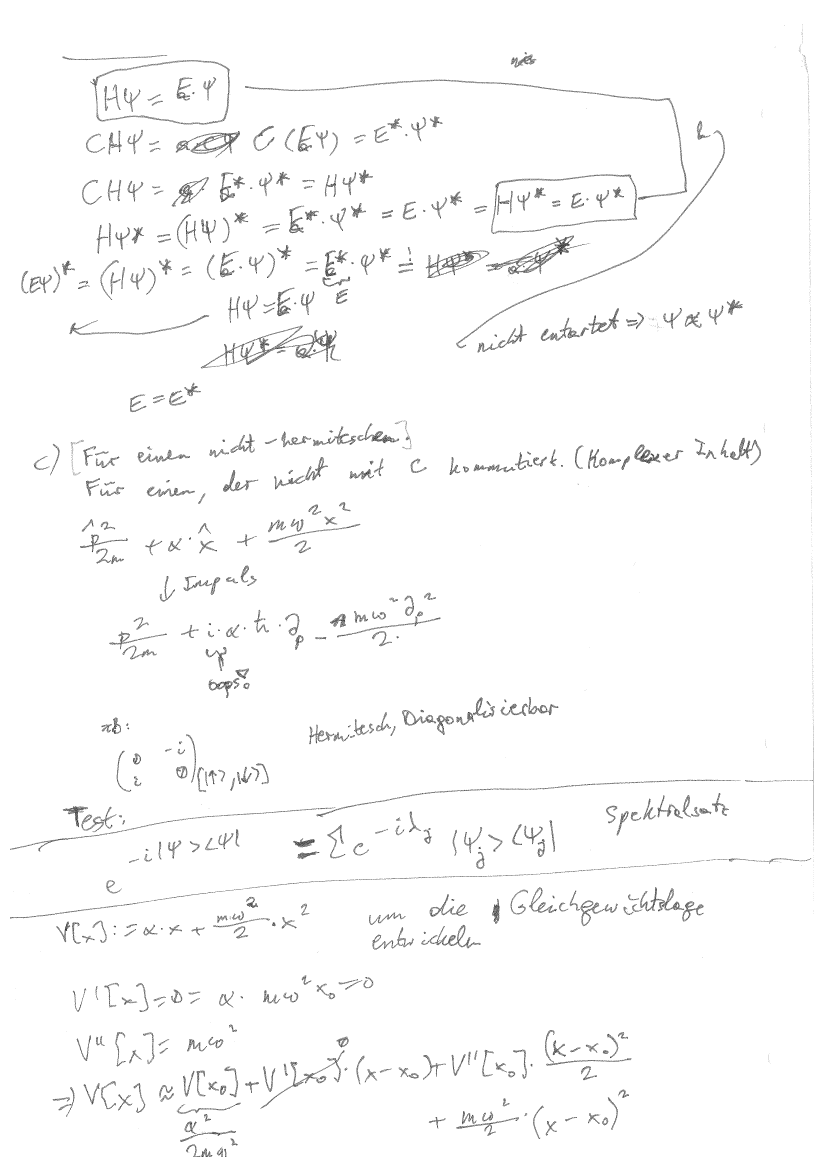 Hψ = E·ψ
CHψ = C(Eψ) = E*·ψ*
CHψ = E*·ψ* = Hψ*
Hψ* = (Hψ)* = E*·ψ* = E·ψ* = Hψ* = E·ψ*
(Eψ)* = (Hψ)* = (E·ψ)* = E*·ψ* =
Hψ = E·ψ E
nicht entartet => ψ ∝ ψ*
E = E*
c) [Für einen nicht-hermiteschen.]
Für einen, der nicht mit C kommutiert. (Komplexer Inhalt)
p̂²/2m + α·x̂ + mω²x²/2
↓ Impuls
p²/2m + i·α·ħ·∂p - mω²∂p²/2
oops!
zB:
(0 -i
i 0) [|↑>,|↓>]
Hermitesch, Diagonalisierbar
Test:
e^(-i|ψ><ψ|) = Σ e^(-iλj) |ψj> <ψj| Spektralsatz
V[x] := α·x + mω²/2 · x² um die Gleichgewichtslage
entwickeln
V'[x] = 0 = α· mω²x₀ = 0
V''[x] = mω²
=> V[x] ≈ V[x₀] + V'[x₀]·(x-x₀) + V''[x₀]·(x-x₀)²/2
α²/2mω² + mω²/2·(x-x₀)²